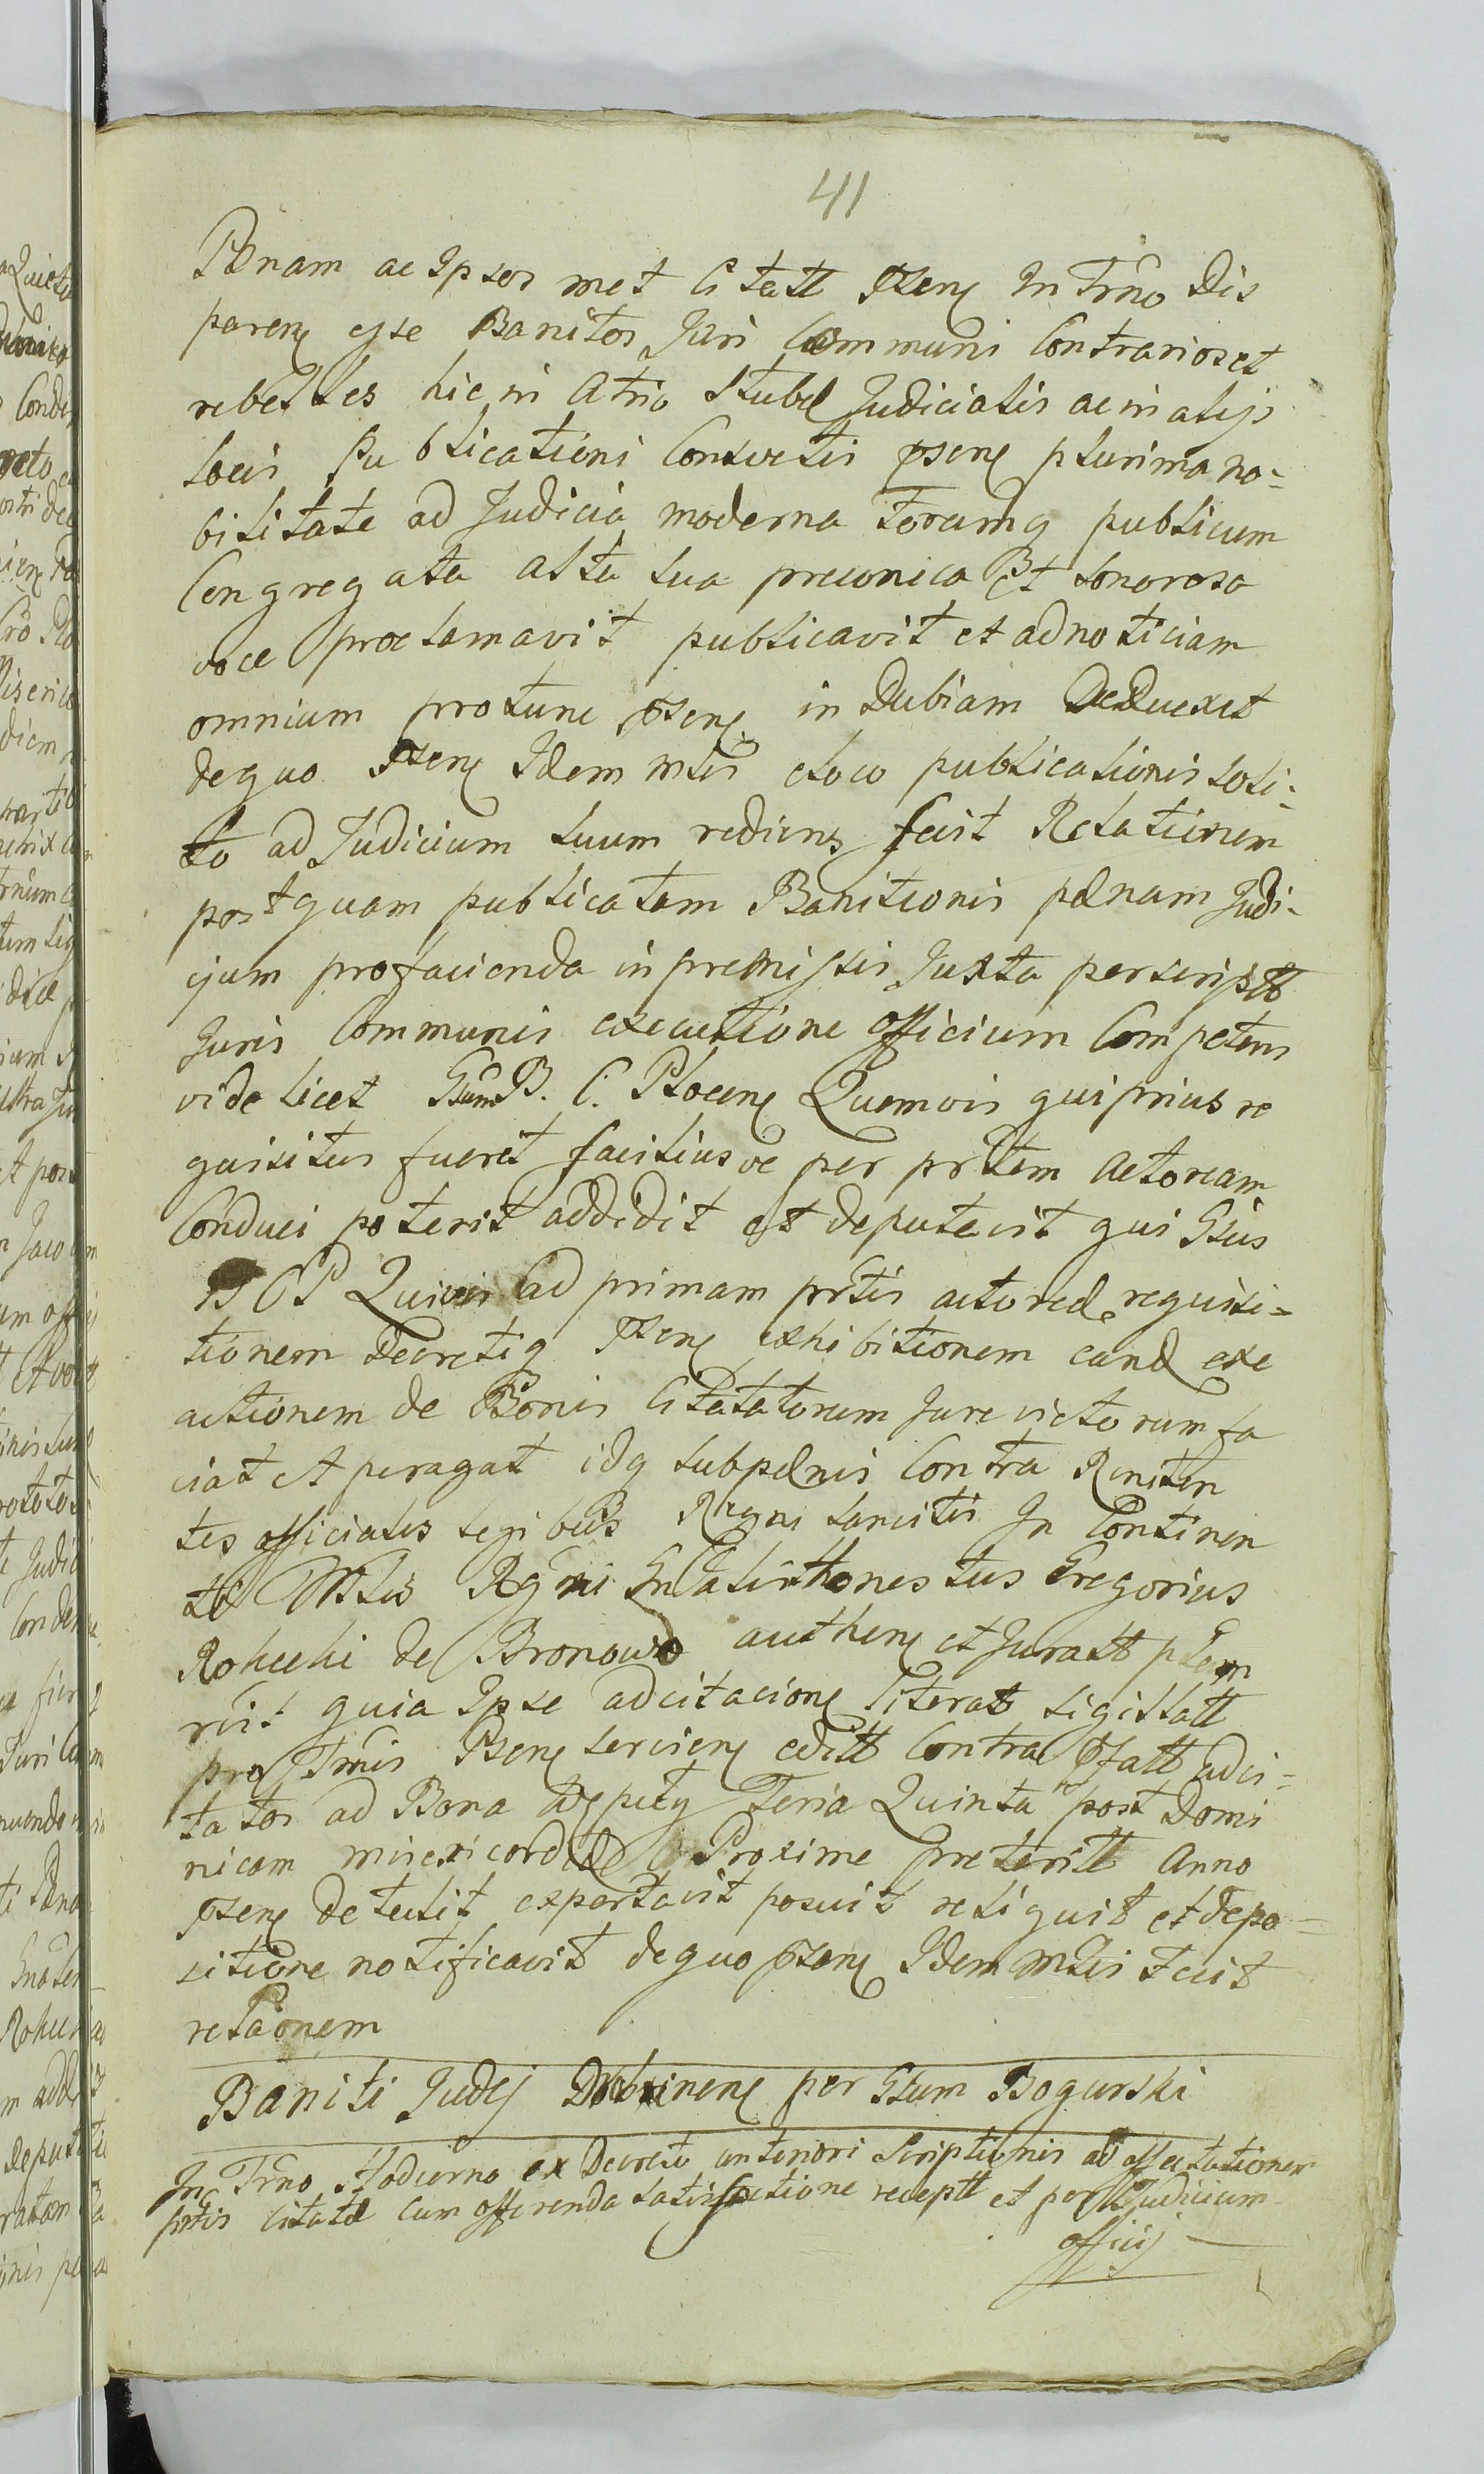 41
Pænam ac Ipsos met Citatt Psens In Trno Dis
parens esse Banitos Juri Communi Contrarios et
rebelles hic in Atrio Stubæ Judicialis ac in alijs
locis Publicationi Consvetis psens plurima no=
bilitate ad Judicia moderna forumq publicum
Congregata alta sua preconica Et sonorosa
voce proclamavit publicavit et ad noticiam
omnium protunc psens in Dubiam Deduexit
de quo Psens Idem mlis eloco publicationis soli=
to ad Judicium suum rediens fecit Relationem
post quam publicatam Banitionis pænam Judi-
cjum profacienda in premissis Juxta perscriptt
Juris Communis executione officium Competens
videlicet Gsum B. C. Plocens Quemvis qui prius re
quisitus fuerit facilius ve per prtem Actoream
Conduci poterit addidit et deputavit qui Gsus
B C P Quivis ad primam prtis actoreæ requisi=
tionem Decretiq Psens exhibitionem eand exe
cutionem de Bonis Citatatorum Jure victorum fa
ciat et peragat idq sub pænis Contra Reniten
tes officiales legibus Regni sancitis In Continen
ti Mlis Rgni Gnalis Honestus Gregorius
Rokicki de Bronowo authens et Juratt
quia Ipse ad citacione literat sigillatt
pro Trmis Psens serviens editt Contra Pfatt adci=
tatos ad Bona Feria Quinta post Domi
nicam misericordiæ Proxime preteritt Anno
psens detulit exportavit posuit reliquit et depo=
sitione notificavit de quo psens Idem mlis fecit
relaonem
Baniti Judcj Dobrinens per Gsum Bogurski
In Trno Hodierno ex Decreto anteriori Scriptionis ad affectationem
prtis Citatæ cum offerenda satisfactione receptt et per Judicium
officij